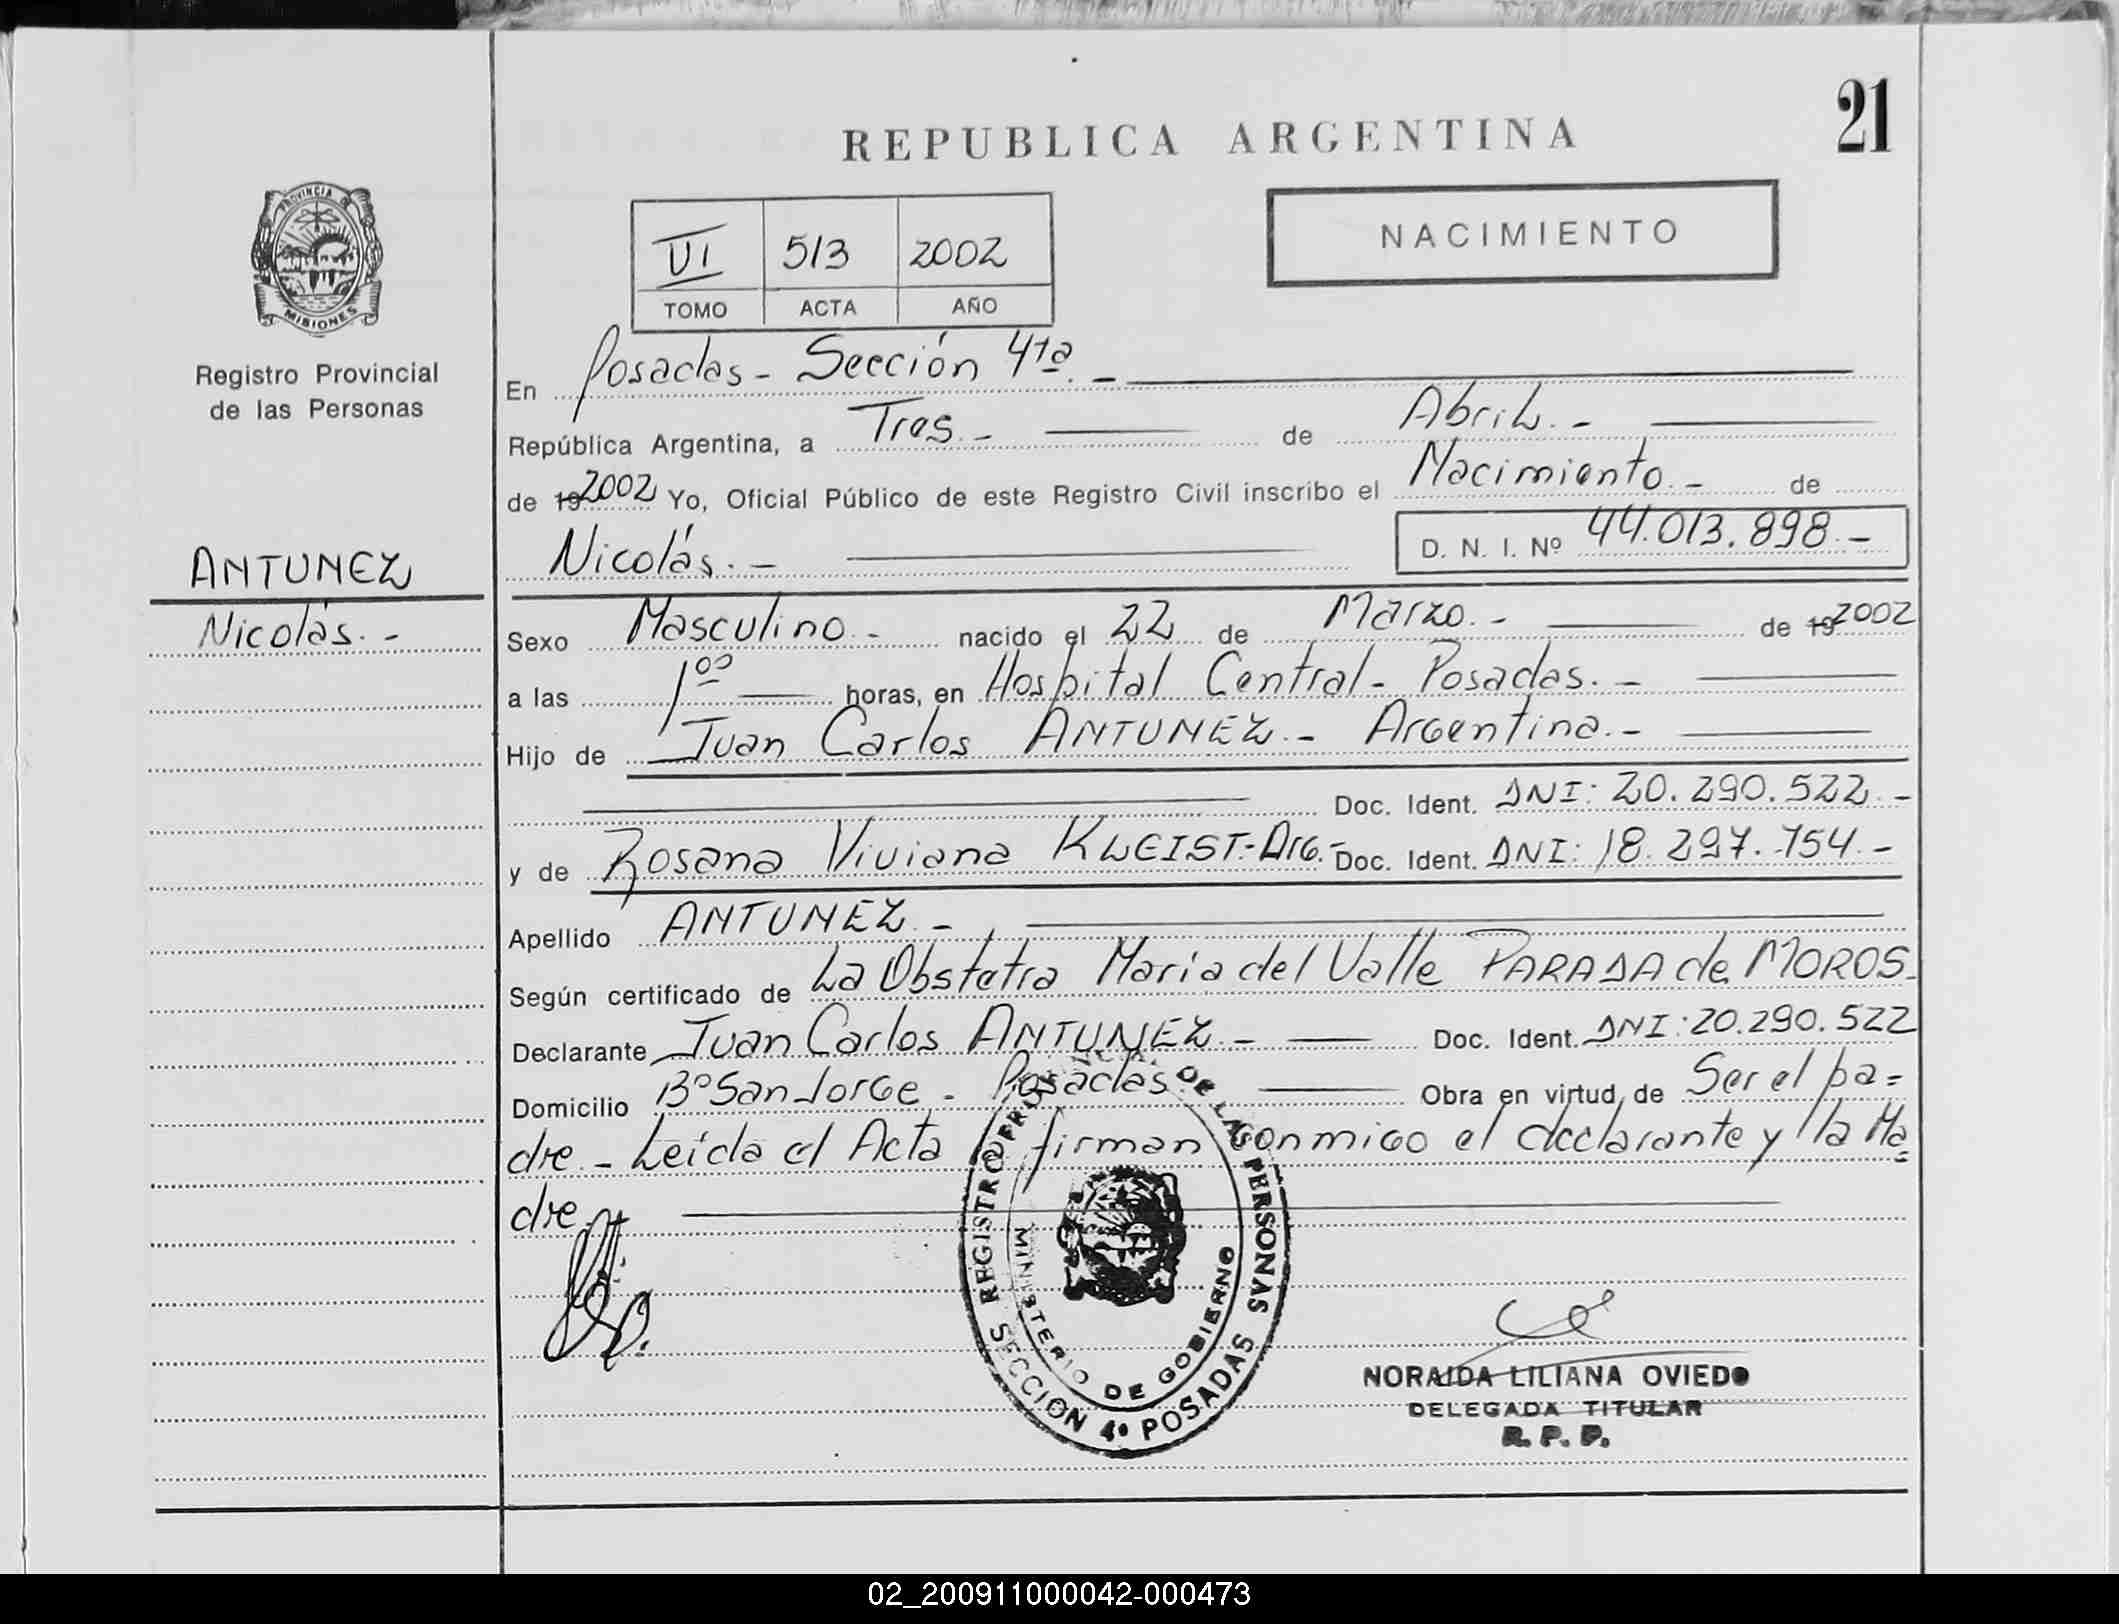 21
REPUBLICA ARGENTINA
PROVINCIA DE
MISIONES
VI 513 2002
TOMO ACTA AÑO
NACIMIENTO
Registro Provincial
de las Personas
En Posadas - Sección 4ta. -
República Argentina, a Tres. - de Abril. -
de 19 2002 Yo, Oficial Público de este Registro Civil inscribo el Nacimiento. - de
Nicolás. - D. N. I. Nº 44.013.898. -
ANTUNEZ
Nicolás. -
Sexo Masculino. - nacido el 22 de Marzo. - de 19 2002
a las 1 00 horas, en Hospital Central - Posadas. -
Hijo de Juan Carlos ANTUNEZ. - Argentina. -
Doc. Ident. DNI: 20.290.522. -
y de Rosana Viviana KLEIST.- Arg. - Doc. Ident. DNI: 18.297.154. -
Apellido ANTUNEZ. -
Según certificado de La Obstetra Maria del Valle PARADA de MOROS.
Declarante Juan Carlos ANTUNEZ. - Doc. Ident. DNI: 20.290.522
Domicilio Bº San Jorge - Posadas Obra en virtud de Ser el pa=
dre. - Leída el Acta la firman conmigo el declarante y la Ma=
dre.
REGISTRO PROVINCIAL DE LAS PERSONAS
MINISTERIO DE GOBIERNO
SECCION 4º POSADAS
NORAIDA LILIANA OVIEDO
DELEGADA TITULAR
R. P. P.
02_200911000042-000473